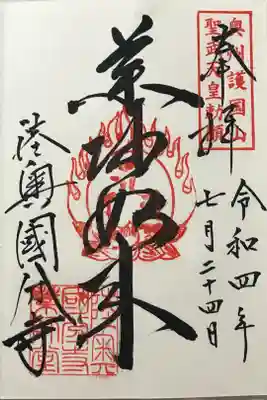 奥州護国山
聖武天皇勅願
奉拝
令和四年
七月二十四日
薬師如来
陸奥國分寺